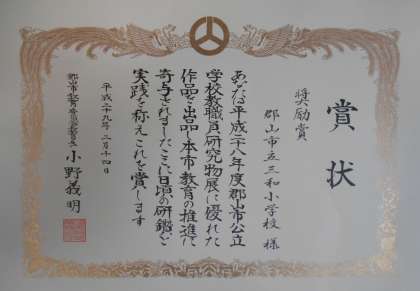 賞状
奨励賞
郡山市立三和小学校 様
あなたは平成二十八年度郡山市公立
学校教職員研究物展に優れた
作品を出品し本市教育の推進に
寄与されましたここに日頃の研鑽と
実践を称えこれを賞します
平成二十九年二月十四日
郡山市教育委員会教育長 小野義明